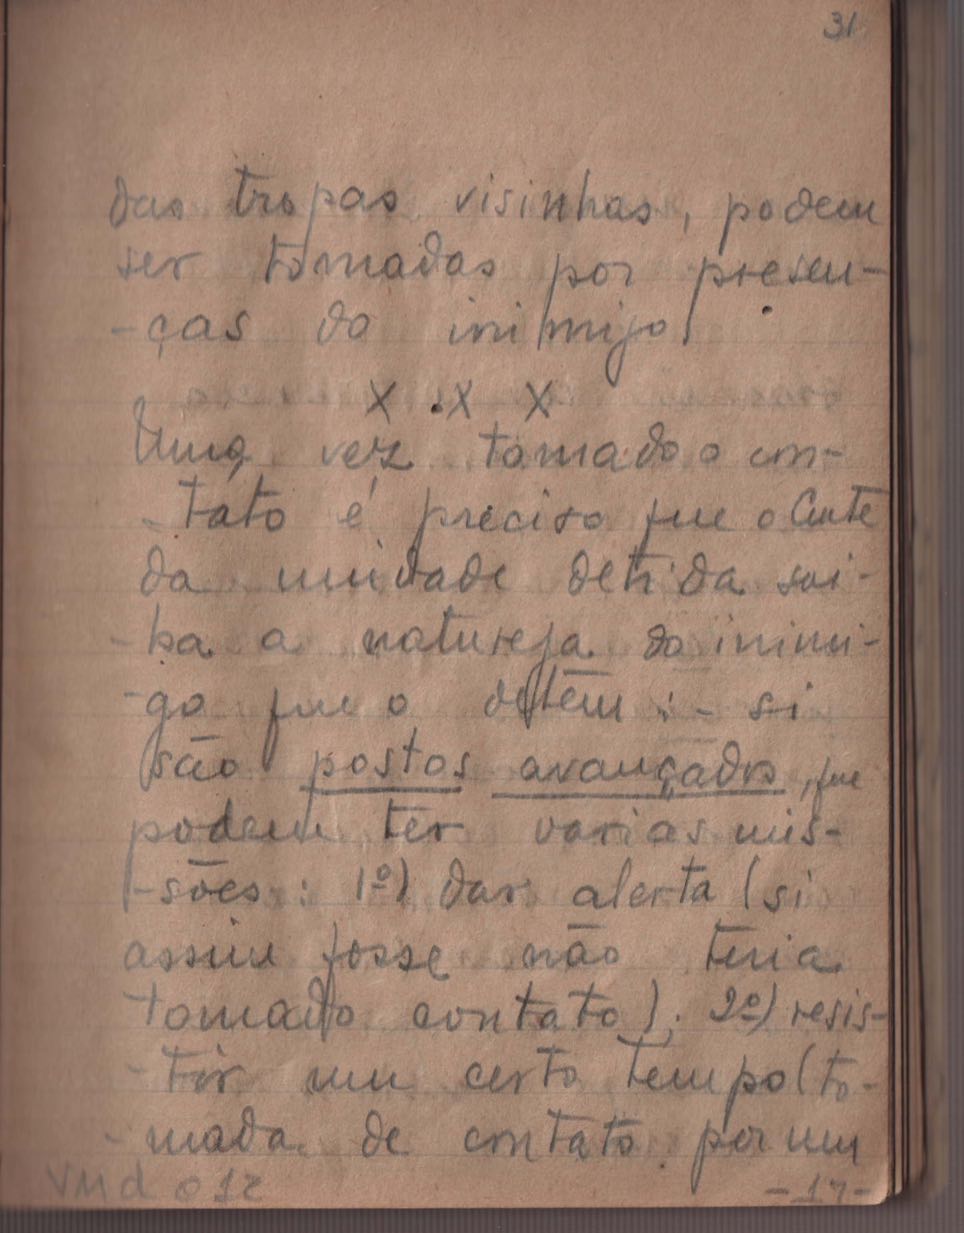 31
das tropas visinhas, podem
ser tomadas por presen-
-ças do inimigo.
X X X
Uma vez tomado o con-
-táto é preciso que o Cmte
da unidade detida sai-
-ba a natureza do inimi-
-go que o detêm :- si
são postos avançados, que
podem ter varias mis-
-sões: 1º) dar alerta (si
assim fosse não teria
tomado contato); 2º) resis-
-tir um certo tempo (to-
-mada de contato por um
VMd 012
-17-